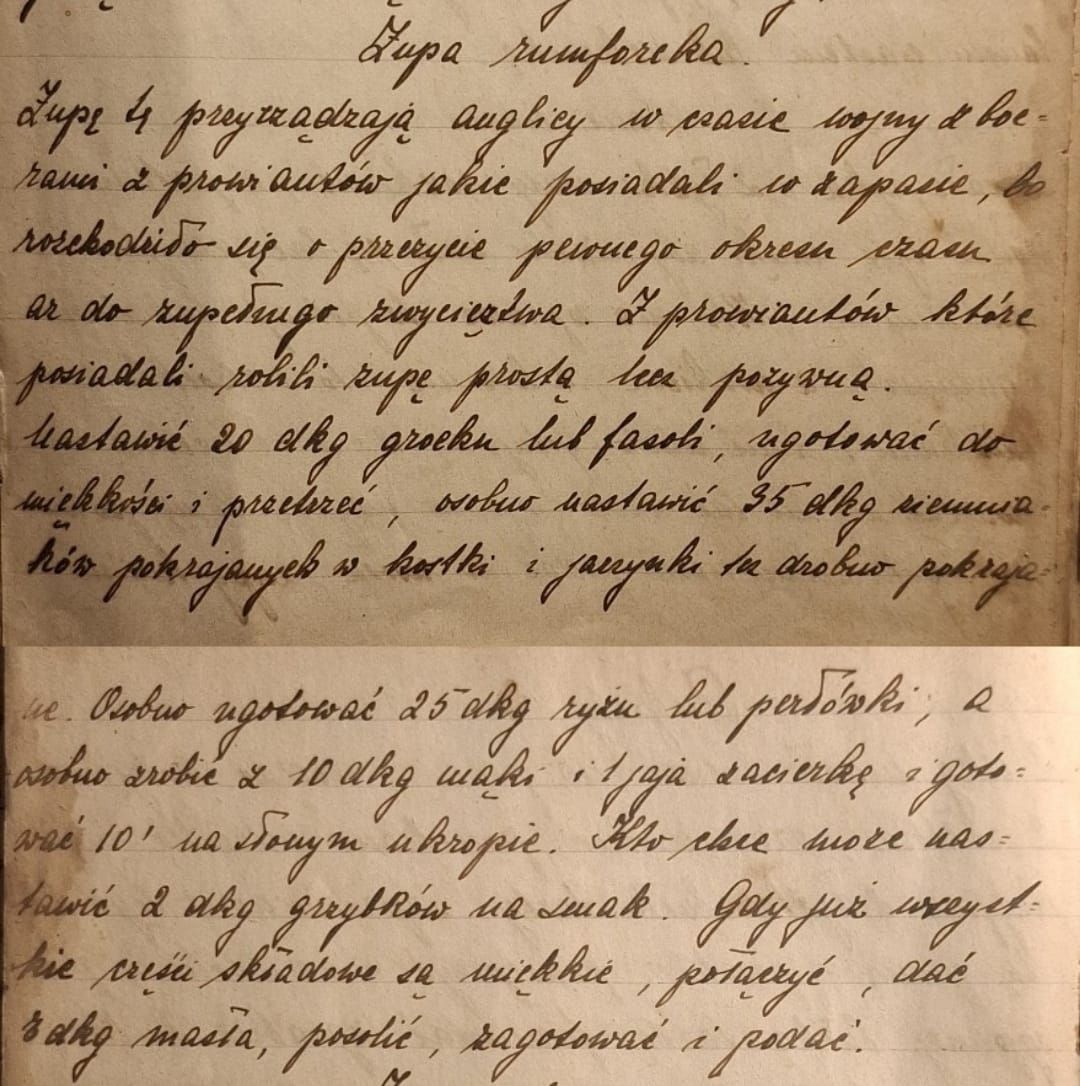 Zupa rumforcka.
Zupę tą przyrządzają anglicy w czasie wojny z boe=
rami z prowiantów jakie posiadali w zapasie, bo
rozchodziło się o przeżycie pewnego okresu czasu
aż do zupełnego zwycięztwa. Z prowiantów które
posiadali robili zupę prostą lecz pożywną.
Nastawić 20 dkg grochu lub fasoli, ugotować do
miękkości i przetrzeć, osobno nastawić 35 dkg ziemnia=
ków pokrajanych w kostki i jarzynki też drobno pokraja=
ne. Osobno ugotować 25 dkg ryżu lub perłówki, a
osobno zrobić z 10 dkg mąki i 1 jaja zacierkę i goto=
wać 10' na słonym ukropie. Kto chce może nas=
tawić 2 dkg grzybków na smak. Gdy już wszyst=
kie części składowe są miękkie, połączyć, dać
dkg masła, posolić, zagotować i podać.